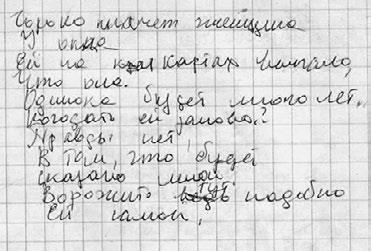 Горько плачет женщина
У окна
Ей на картах выпало,
Что она.
Одинока будет много лет.
Погадать ей заново?
Правды нет,
В том, что будет
сказано мной
Ворожить тут надобно
Ей самой,